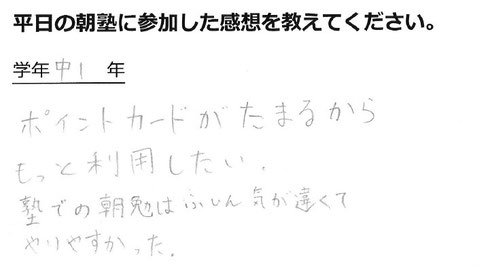 平日の朝塾に参加した感想を教えてください。
学年 中1 年
ポイントカードがたまるから
もっと利用したい。
塾での朝勉はふしん気が違くて
やりやすかった。